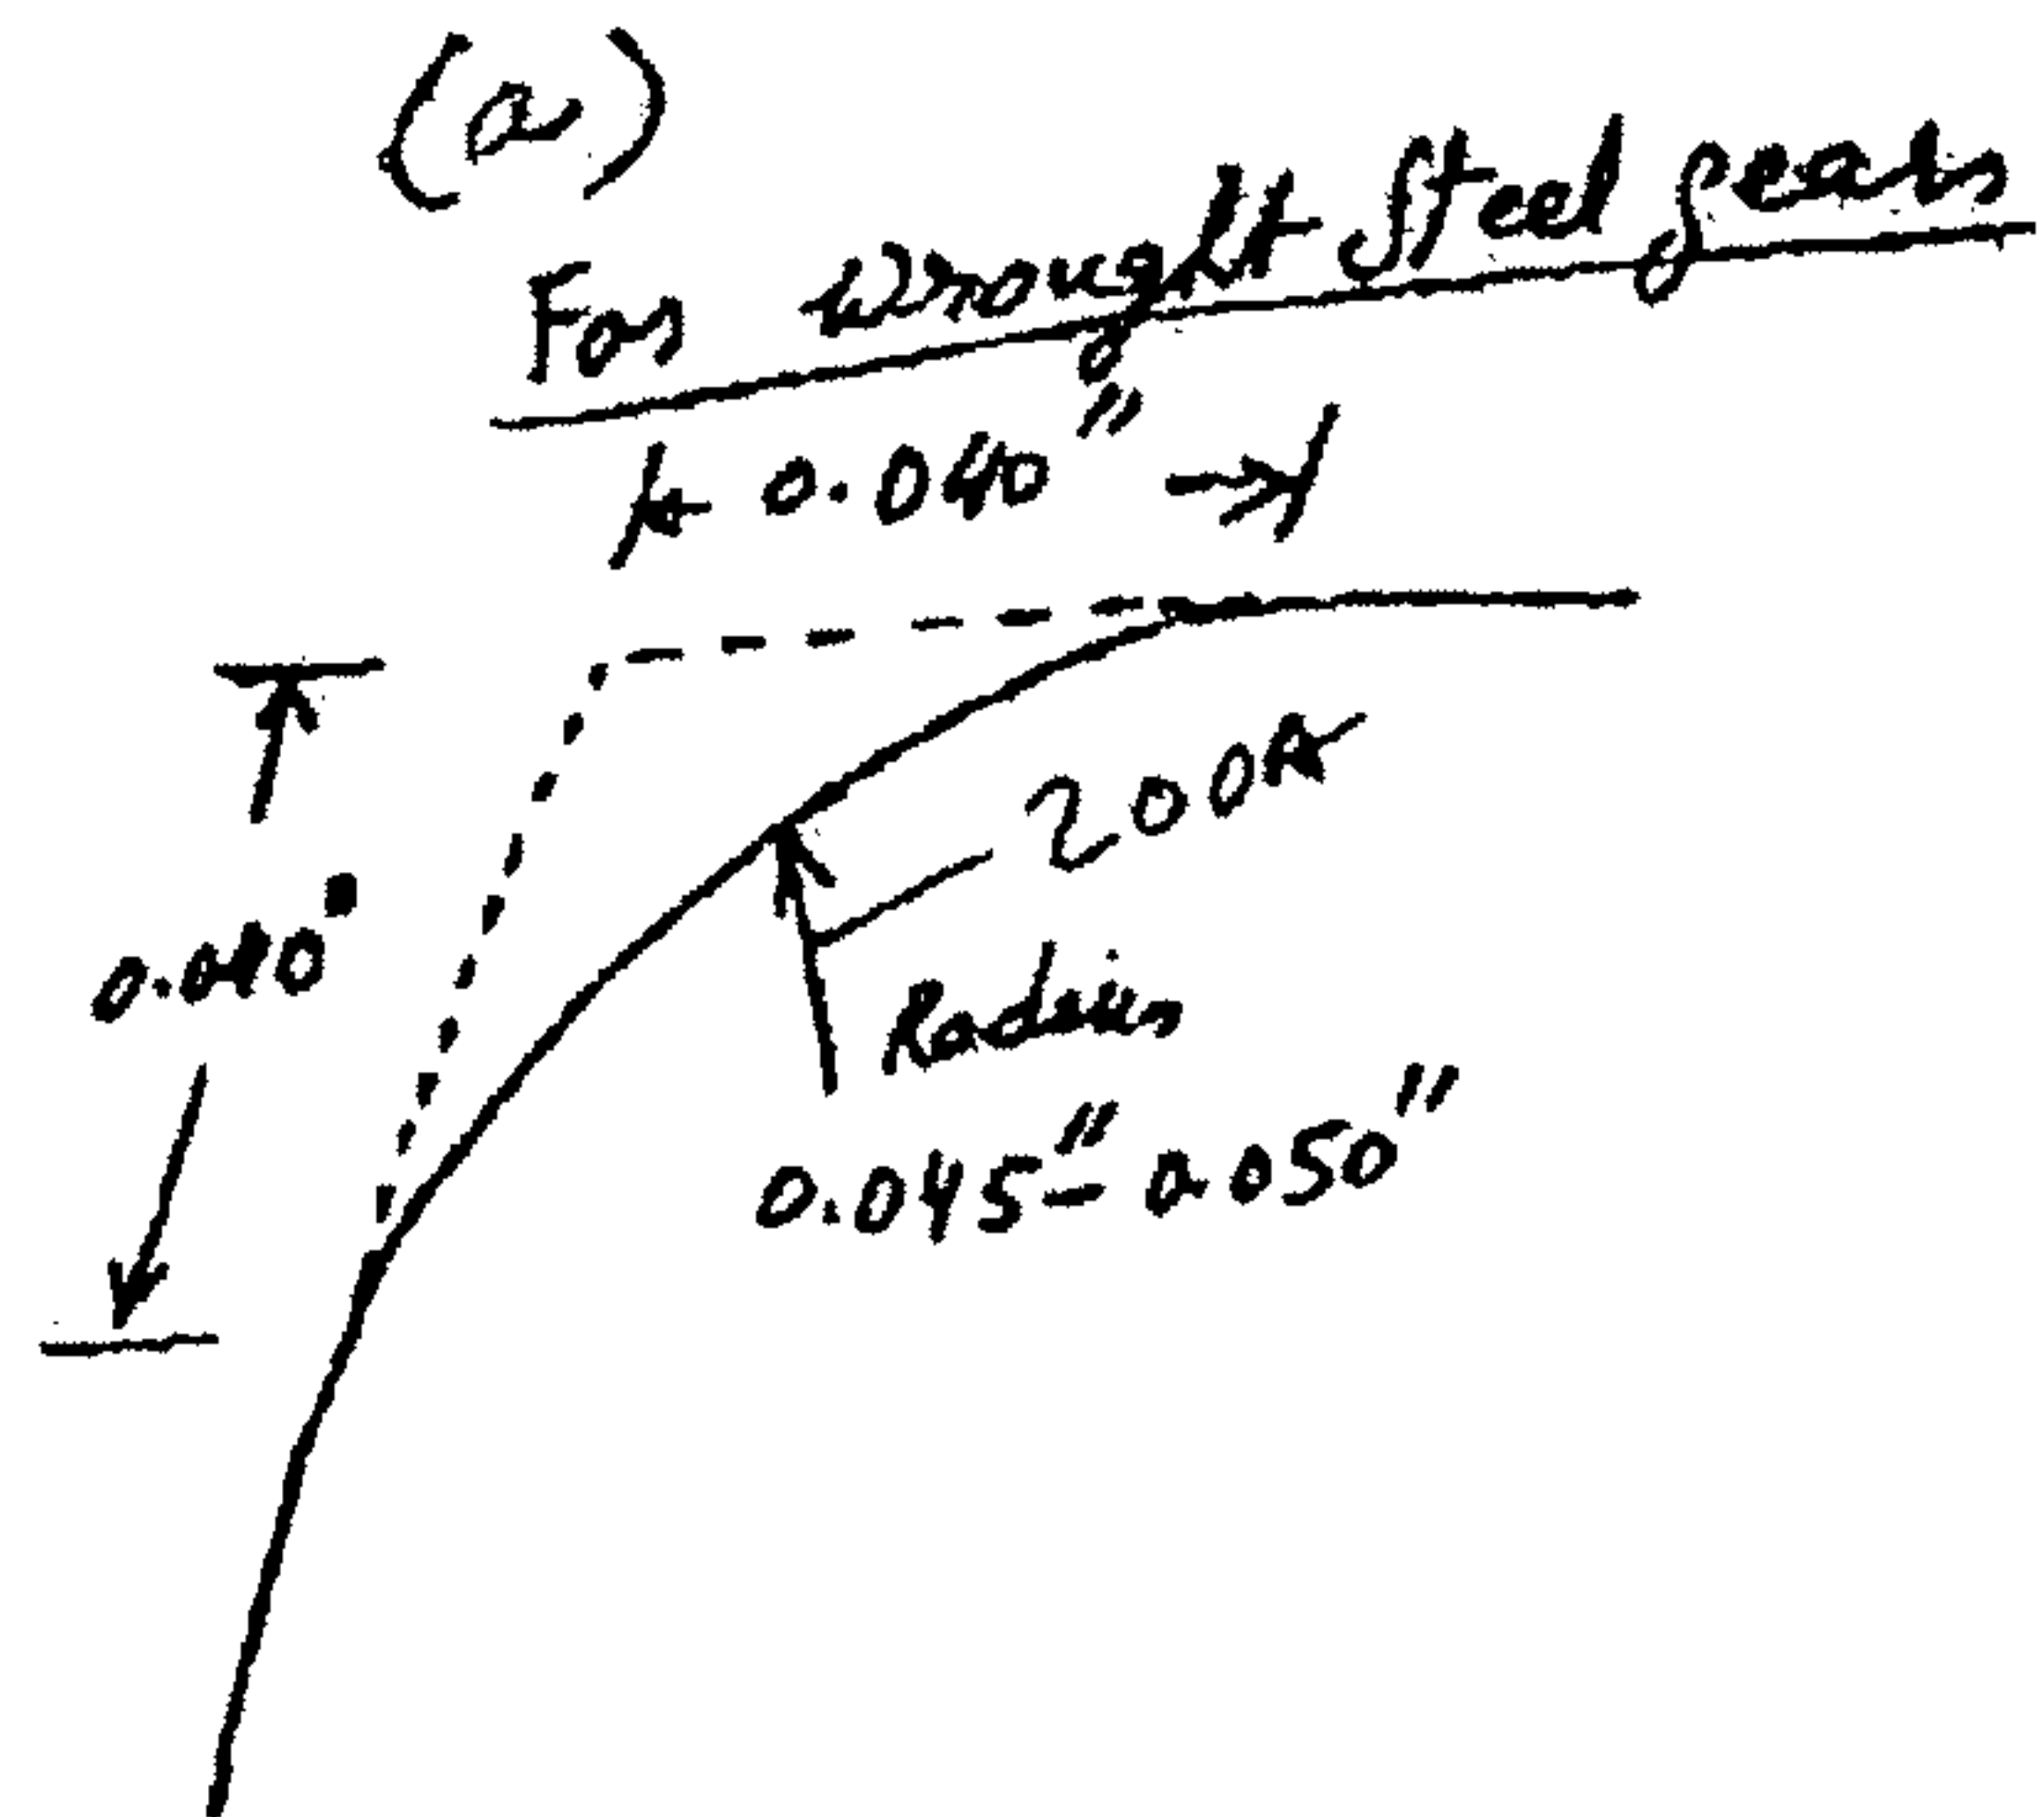 (a)
For wrought steel gears
0.040"
200A
0.040"
Radius
0.045"- 0.050"